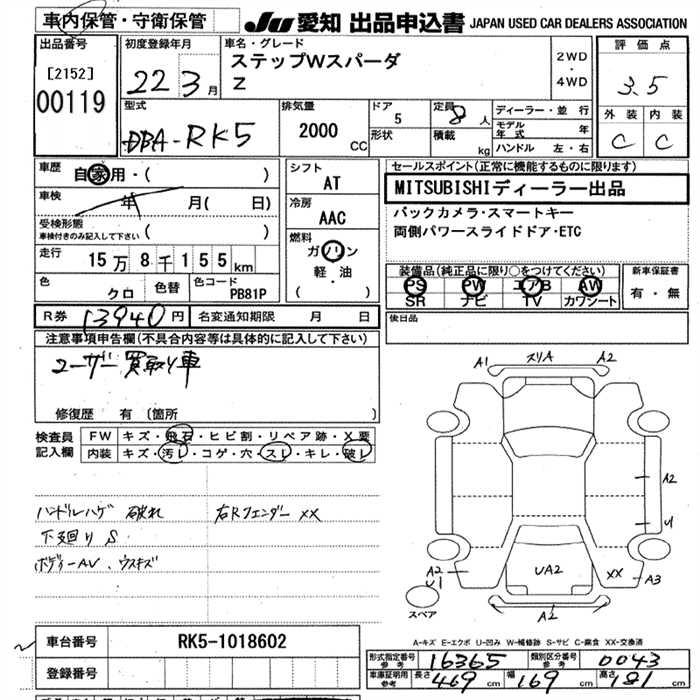 車内保管・守衛保管
JU 愛知 出品申込書 JAPAN USED CAR DEALERS ASSOCIATION
出品番号
[2152]
00119
初度登録年月
22 3月
車名・グレード
ステップWスパーダ
Z
2WD
・
4WD
評価点
3.5
外装 内装
C C
型式
DBA-RK5
排気量
2000 CC
ドア
5
形状
定員
8人
積載 kg
ディーラー・並行
モデル年式 年
ハンドル 左・右
車歴
自家用・( )
車検
年 月( 日)
受検形態
車検付きのみ記入して下さい ( )
走行
15万8千155km
色
クロ
色替
色コード
PB81P
シフト
AT
冷房
AAC
燃料
ガソリン
軽・油
( )
セールスポイント(正常に機能するものに限ります)
MITSUBISHIディーラー出品
バックカメラ・スマートキー
両側パワースライドドア・ETC
装備品(純正品に限り○をつけてください)
PS PW エアB AW
SR ナビ TV カワシート
新車保証書
有・無
R券 13940円
名変通知期限 月 日
後日品
注意事項申告欄(不具合内容等は具体的に記入して下さい)
ユーザー買取り車
修復歴 有 〔箇所 〕
検査員
記入欄
FW キズ・飛石・ヒビ割・リペア跡・X要
内装 キズ・汚レ・コゲ・穴・スレ・キレ・破レ
ハンドルハゲ 破れ 右Rフェンダー XX
下廻り S
ボディーAV、ウスキズ
A1 スリA A2
A2
U
A2
U1
UA2
XX
A3
スペア
A2
A-キズ E-エクボ U-凹み W-補修跡 S-サビ C-腐食 XX-交換済
車台番号 RK5-1018602
登録番号
形式指定番号
参考
16365
類別区分番号
参考
0043
車庫証明用
参考
長さ 469 cm
幅 169 cm
高さ 181 cm